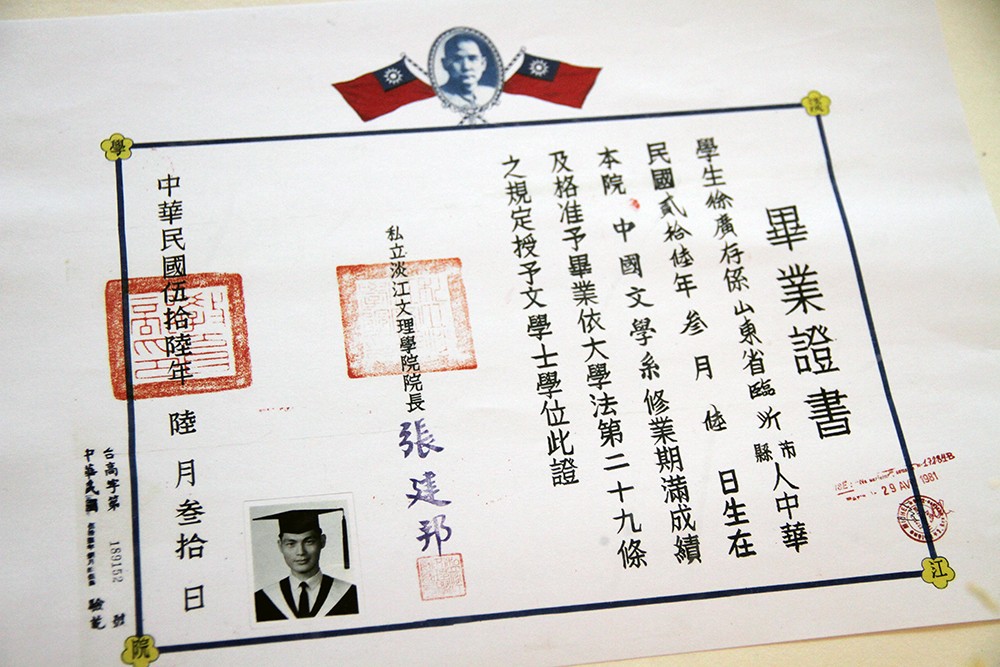 畢業證書
學生徐廣存係山東省臨沂市縣人中華
民國貳拾陸年叁月陸日生在
本院中國文學系修業期滿成績
及格准予畢業依大學法第二十九條
之規定授予文學士學位此證
私立淡江文理學院院長張建邦
中華民國伍拾陸年陸月叁拾日
台高字第189152號
中華民國
驗訖
淡
江
學
院
29 AV 1981